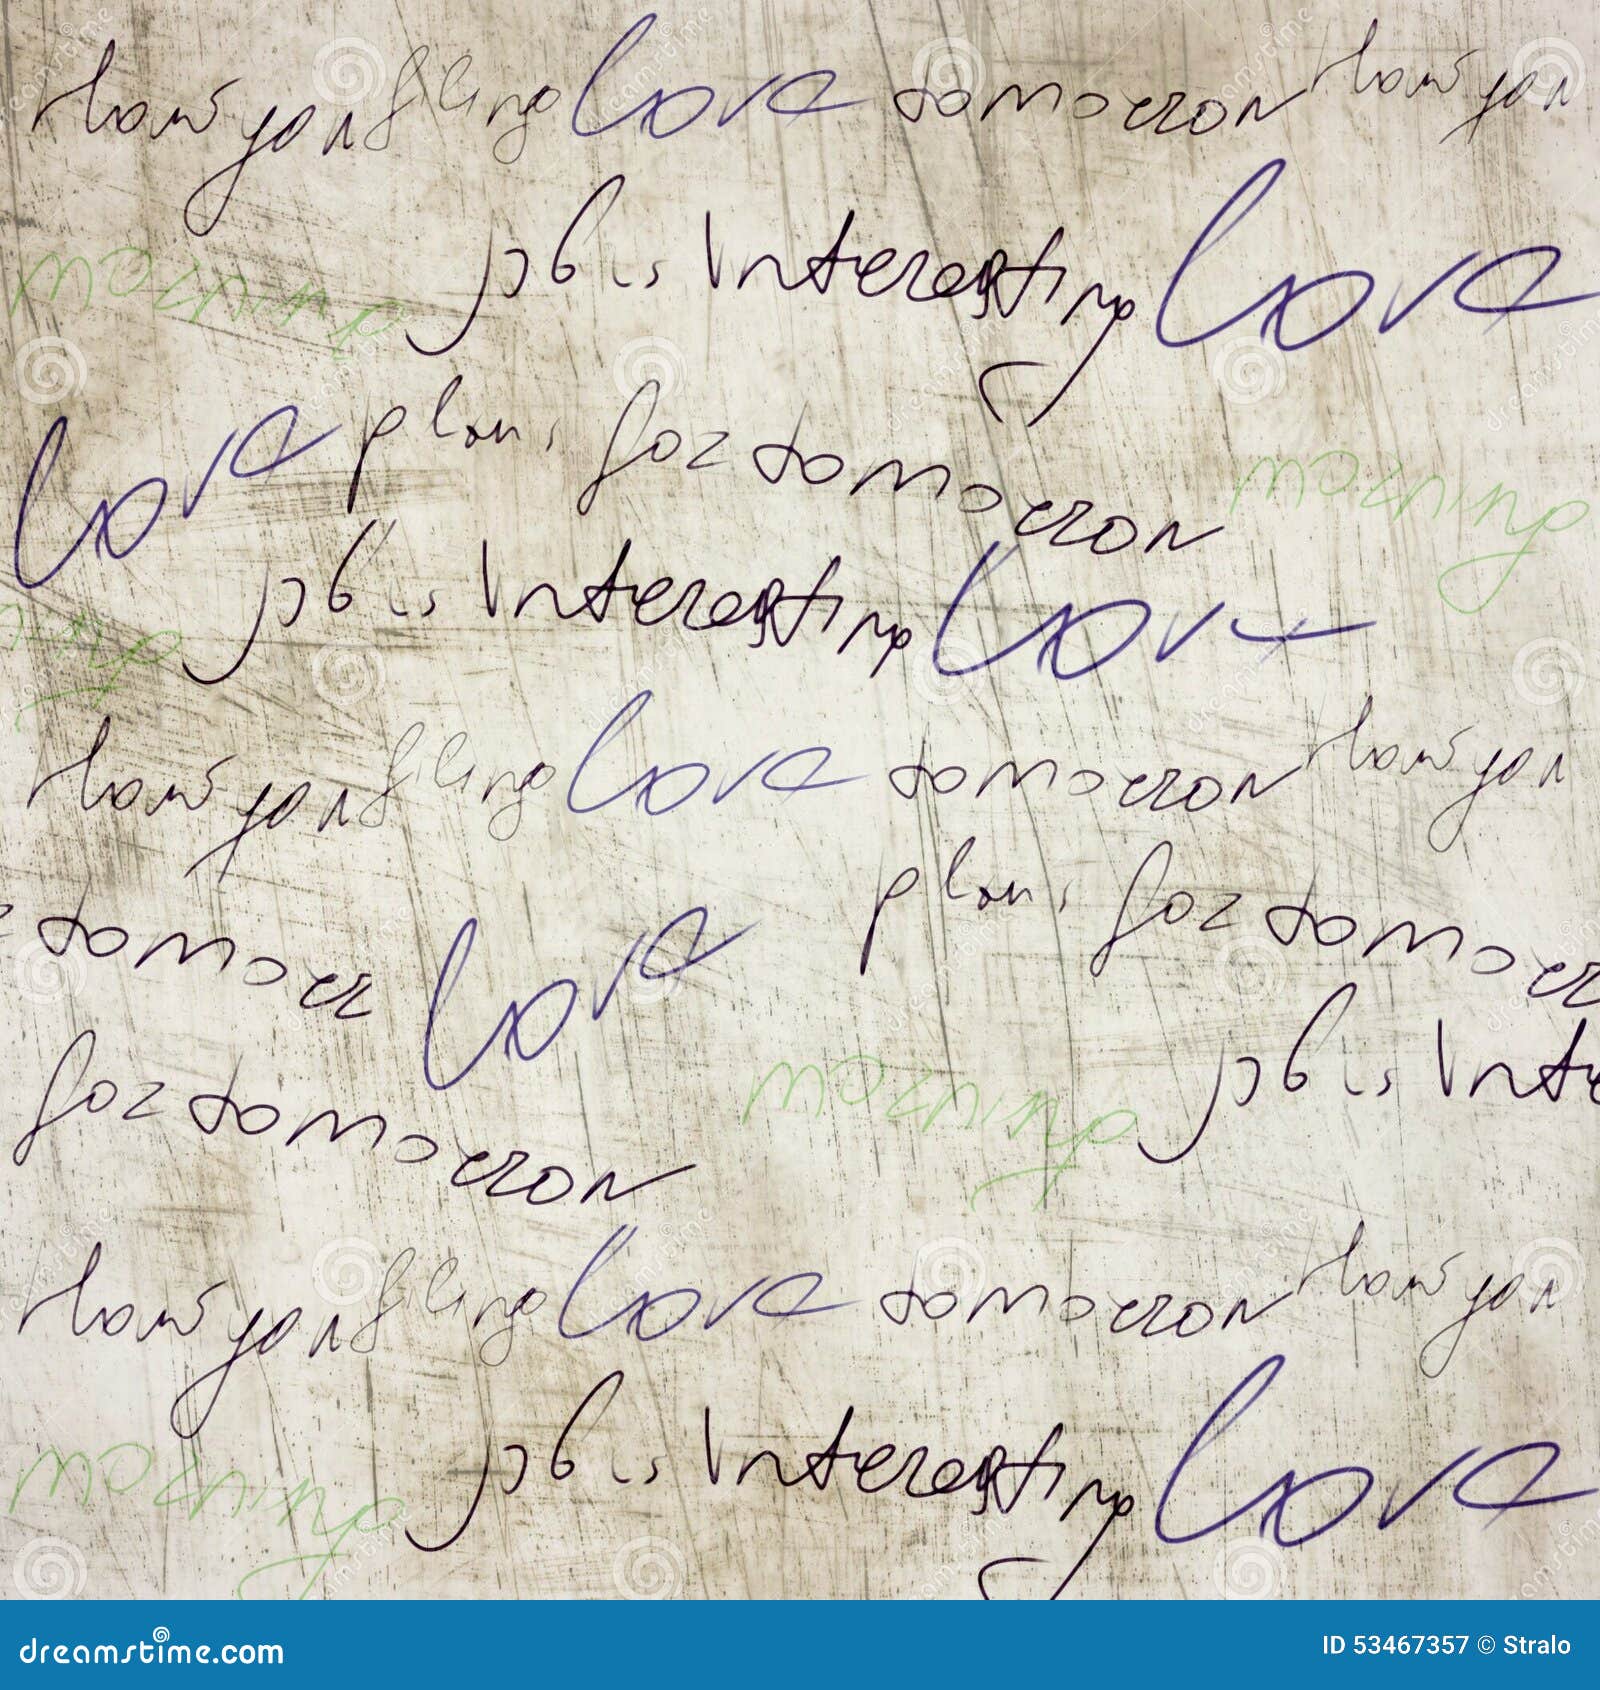 how you filing love tomorrow how you
morning job is Interesting love
love plans for tomorrow morning
job is Interesting love
how you filing love tomorrow how you
plans for tomorr
tomorr love
for tomorrow morning job is Inte
how you filing love tomorrow how you
morning job is Interesting love
dreamstime.com ID 53467357 © Stralo